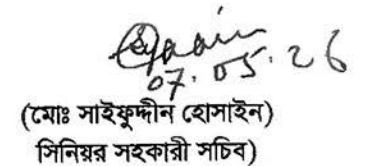 07.05.26
(মোঃ সাইফুদ্দীন হোসাইন)
সিনিয়র সহকারী সচিব)